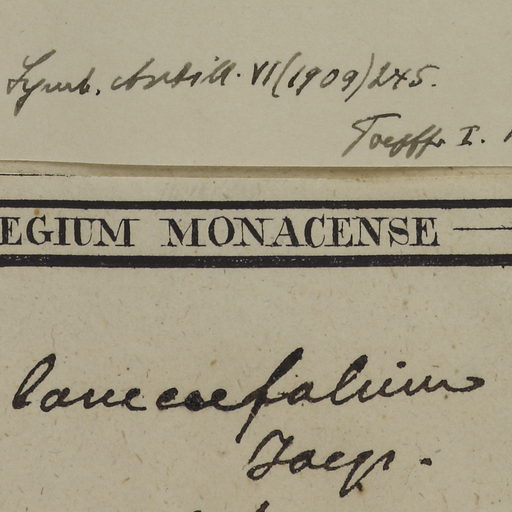 Symb. Antill. VI (1909) 245.
Toepffr I.
EGIUM MONACENSE
lanceaefolium
Jacq.